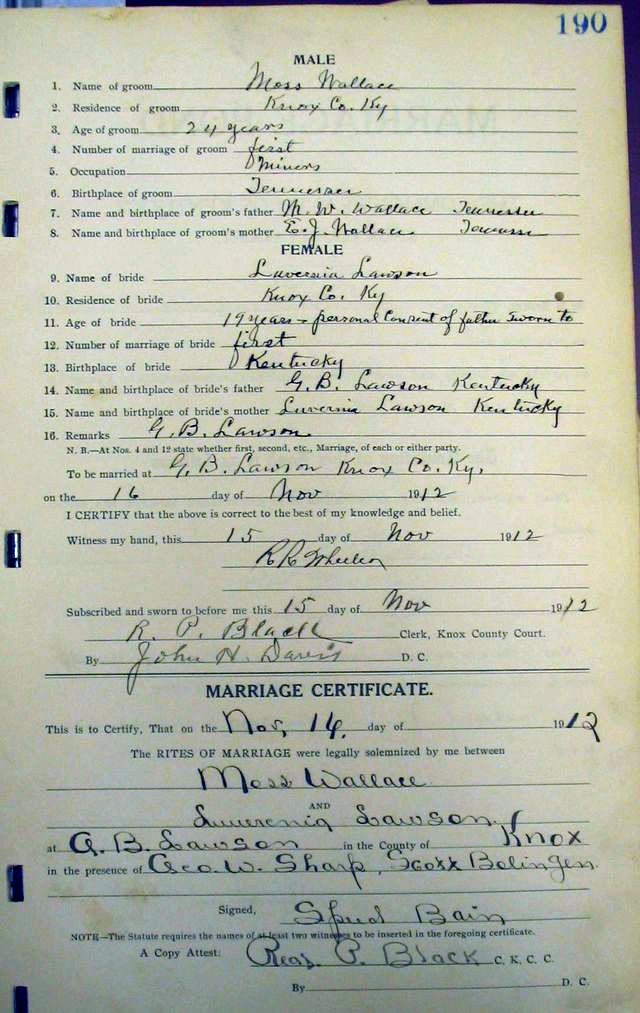 190
MALE
1. Name of groom Moss Wallace
2. Residence of groom Knox Co. Ky
3. Age of groom 24 years
4. Number of marriage of groom first
5. Occupation Miners
6. Birthplace of groom Tennessee
7. Name and birthplace of groom's father M. W. Wallace Tennessee
8. Name and birthplace of groom's mother E. J. Wallace
FEMALE
9. Name of bride Luvernia Lawson
10. Residence of bride Knox Co. Ky
11. Age of bride 19 years - personal Consent of father Sworn to
12. Number of marriage of bride first
13. Birthplace of bride Kentucky
14. Name and birthplace of bride's father G. B. Lawson Kentucky
15. Name and birthplace of bride's mother Luvernia Lawson Kentucky
16. Remarks G. B. Lawson
N. B.—At Nos. 4 and 12 state whether first, second, etc., Marriage, of each or either party.
To be married at G. B. Lawson Knox Co. Ky.
on the 16 day of Nov 1912
I CERTIFY that the above is correct to the best of my knowledge and belief.
Witness my hand, this 15 day of Nov 1912
R R Wheeler
Subscribed and sworn to before me this 15 day of Nov 1912
R. P. Black Clerk, Knox County Court.
By John H. Davis D. C.
MARRIAGE CERTIFICATE.
This is to Certify, That on the Nov, 16, day of 1912
The RITES OF MARRIAGE were legally solemnized by me between
Moss Wallace
AND
Luvernia Lawson
at G. B. Lawson in the County of Knox
in the presence of Geo. W. Sharp, Scott Bolingen.
Signed, Spud Bain
NOTE—The Statute requires the names of at least two witnesses to be inserted in the foregoing certificate.
A Copy Attest: P. Black C. K. C. C.
By D. C.